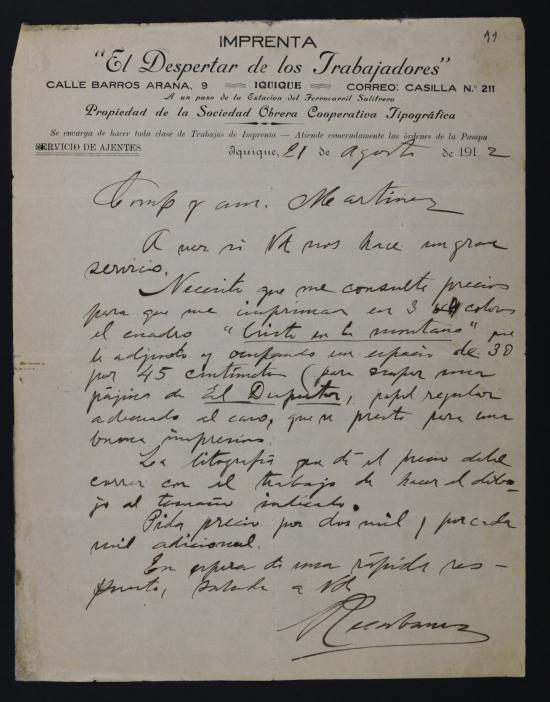 11
IMPRENTA
"El Despertar de los Trabajadores"
CALLE BARROS ARANA, 9 IQUIQUE CORREO: CASILLA N.º 211
A un paso de la Estacion del Ferrocarril Salitrero
Propiedad de la Sociedad Obrera Cooperativa Tipográfica
Se encarga de hacer toda clase de Trabajos de Imprenta — Atiende esmeradamente las órdenes de la Pampa
SERVICIO DE AJENTES Iquique, 21 de Agosto de 1912
Comp y am. Martinez
A ver si Vd nos hace un gran
servicio.
Necesito que me consulte precios
para que me impriman en 3 colores
el cuadro "Cristo en la montaña" que
le adjunto y ocupando un espacio de 30
por 45 centimetros (para ser una
página de El Despertar, papel regular
adecuado al caso, que se preste para una
buena impresion.
La litografía que dé el precio debe
correr con el trabajo de hacer el dibu-
jo al tamaño indicado.
Pida precio por dos mil y por cada
mil adicional.
En espera de una rápida res-
puesta, saluda a Vd
Recabarren